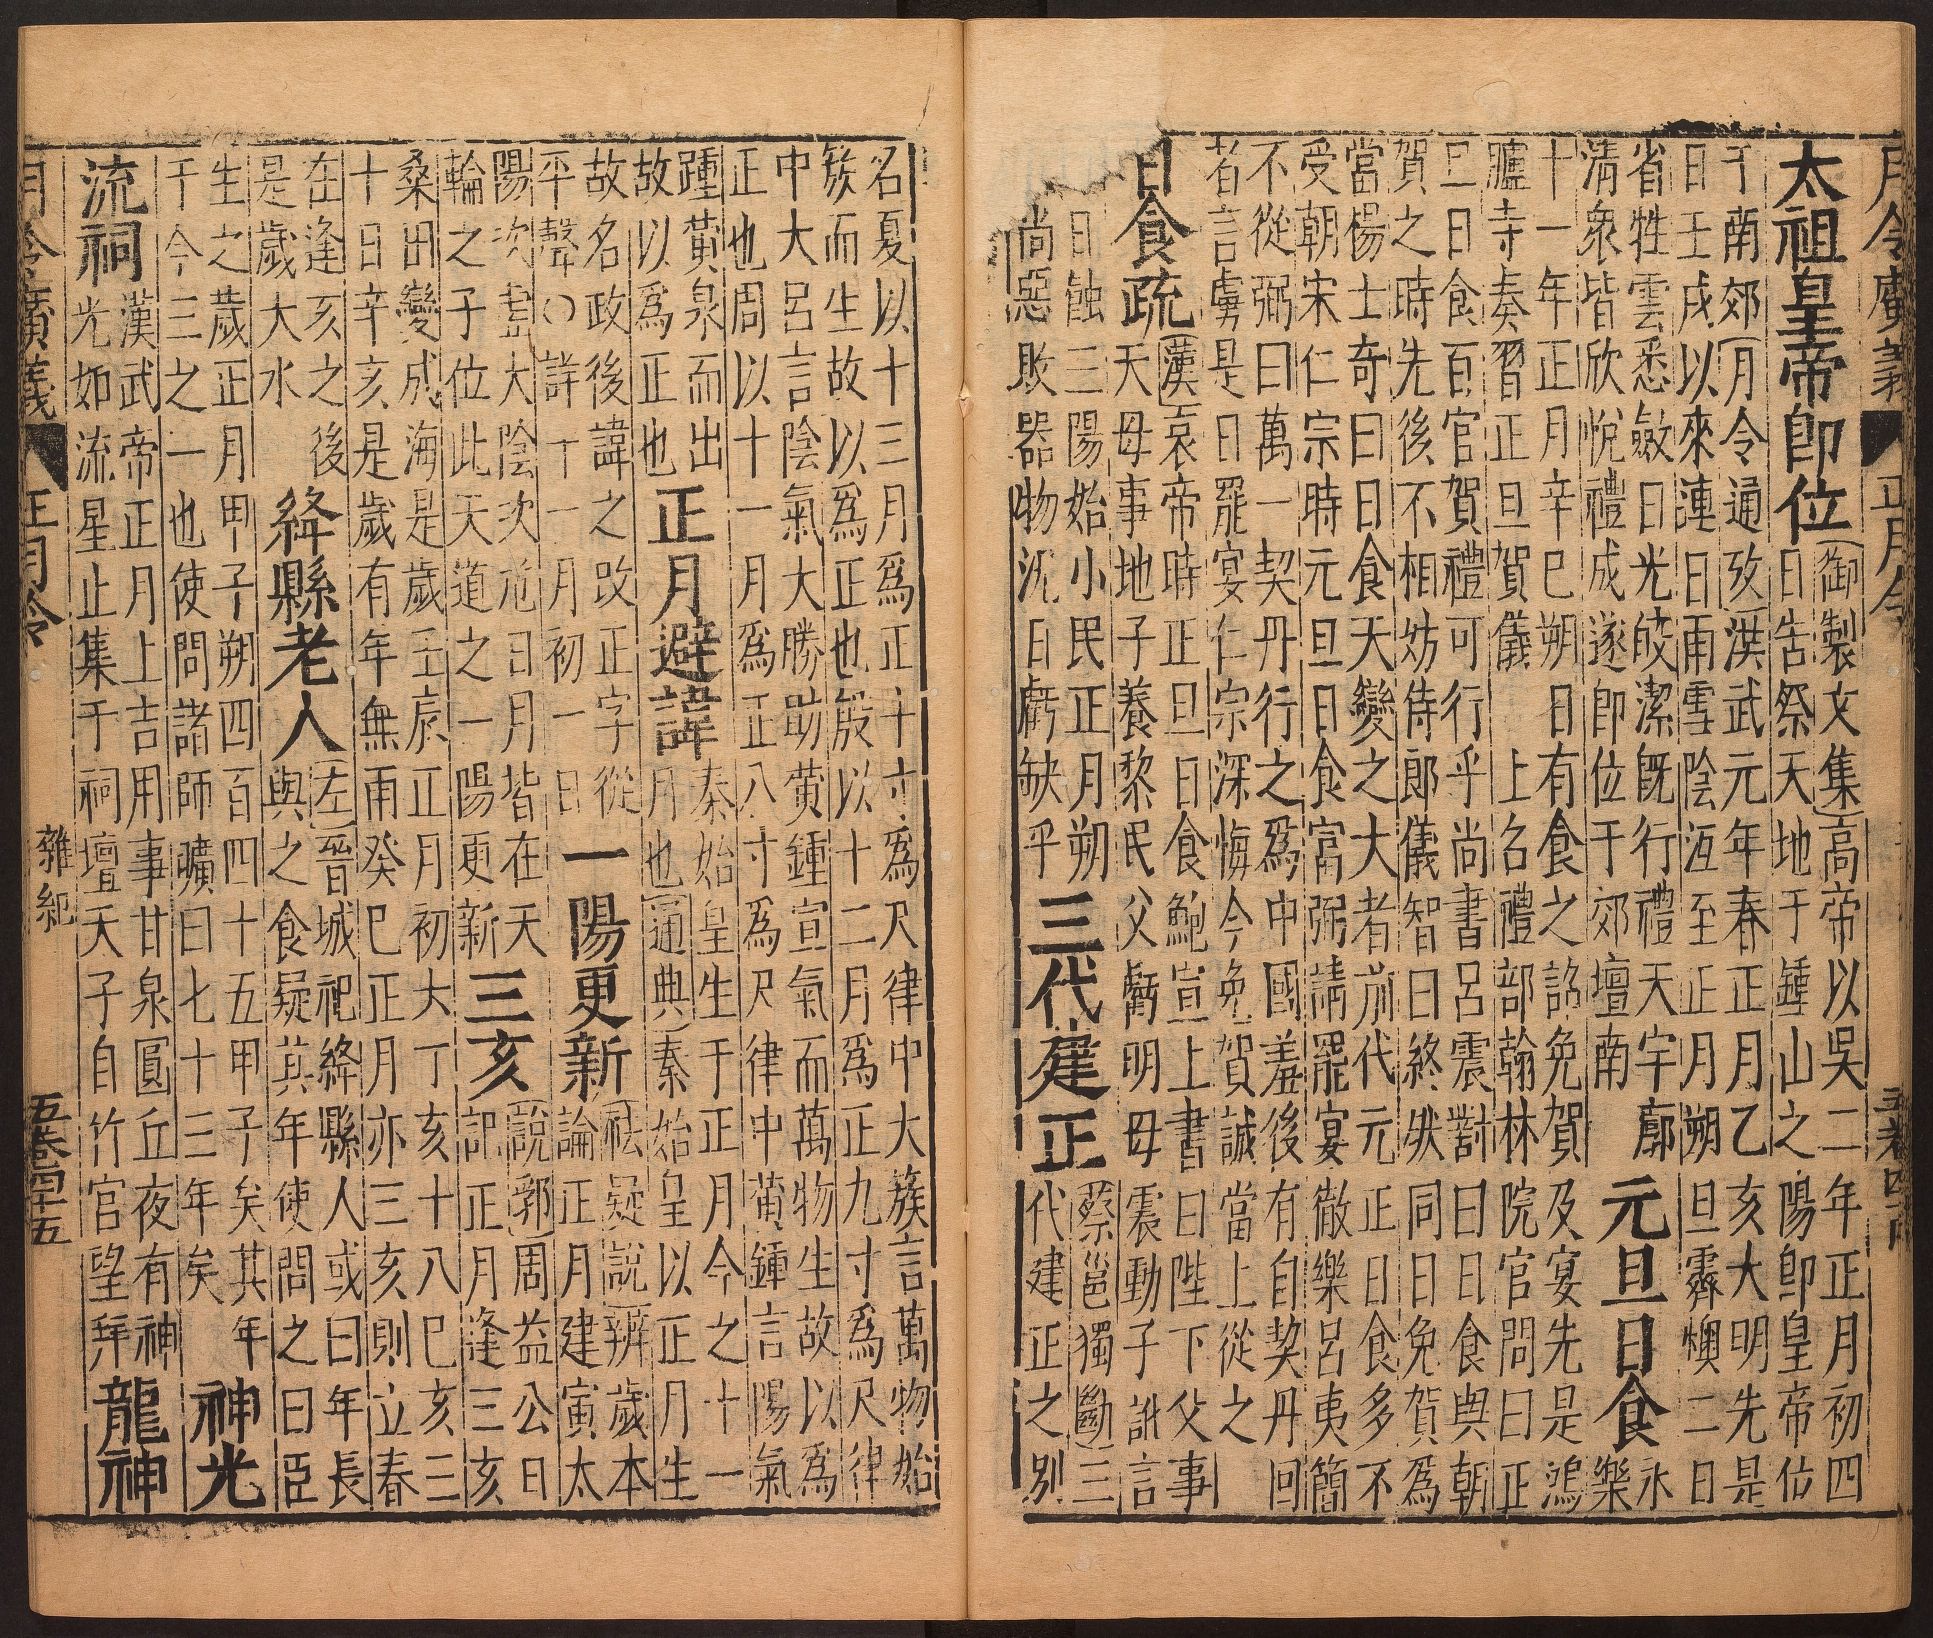 月令廣義 正月令 五卷四十四
太祖皇帝即位
御製文集高帝以吳二年正月初四
日告祭天地于鍾山之陽即皇帝位
于南郊月令通攷洪武元年春正月乙亥大明先是
日壬戌以來連日雨雪陰沍至正月朔旦霽燠二日
省牲雲悉斂日光皎潔旣行禮天宇廓
清衆皆欣悅禮成遂即位于郊壇南
元旦日食
永
樂
十一年正月辛巳朔日有食之詔免賀及宴先是鴻
臚寺奏習正旦賀儀 上名禮部翰林院官問曰正
旦日食百官賀禮可行乎尚書呂震對曰日食與朝
賀之時先後不相妨侍郎儀智曰終然同日免賀爲
當楊士奇曰日食天變之大者前代元正日食多不
受朝宋仁宗時元旦日食富弼請罷宴徹樂呂夷簡
不從弼曰萬一契丹行之爲中國羞後有自契丹回
者言虜是日罷宴仁宗深悔今免賀誠當上從之
日食疏
漢哀帝時正旦日食鮑宣上書曰陛下父事
天母事地子養黎民父虧明母震動子訛言
日蝕三陽始小民正月朔
尚惡敗器物況日虧缺乎
三代建正
蔡邕獨斷三
代建正之別
名夏以十三月爲正十寸爲尺律中大簇言萬物始
簇而生故以爲正也殷以十二月爲正九寸爲尺律
中大呂言陰氣大勝助黄鍾宣氣而萬物生故以爲
正也周以十一月爲正八寸爲尺律中黄鍾言陽氣
踵黄泉而出
故以爲正也
正月避諱
秦始皇生于正月今之十一
月也通典秦始皇以正月生
故名政後諱之改正字從
平聲〇詳十一月初一日
一陽更新
祛疑說辨歲本
論正月建寅太
陽次虛大陰次危日月皆在天
輪之子位此天道之一陽更新
三亥
說郛周益公日
記正月逢三亥
桑田變成海是歲壬辰正月初大丁亥十八巳亥三
十日辛亥是歲有年無雨癸巳正月亦三亥則立春
在逢亥之後
是歲大水
絳縣老人
左晉城祀絳縣人或曰年長
與之食疑其年使問之曰臣
生之歲正月甲子朔四百四十五甲子矣其年
于今三之一也使問諸師曠曰七十三年矣
神光
流祠
漢武帝正月上吉用事甘泉圓丘夜有神
光如流星止集于祠壇天子自竹宮望拜
龍神
月令廣義 正月令 雜紀 五卷四十五